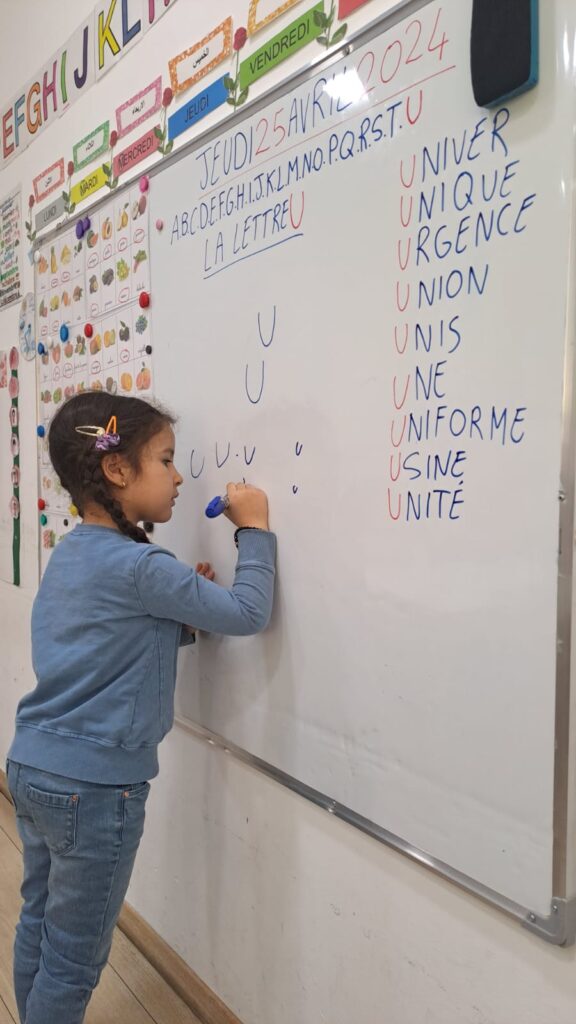 E F G H I J K L M
LUNDI
MARDI
MERCREDI
JEUDI
الخميس
VENDREDI
JEUDI 25 AVRIL 2024
A.B.C.D.E.F.G.H.I.J.K.L.M.N.O.P.Q.R.S.T.U
LA LETTRE U
U
U
U U . U
U
U
UNIVER
UNIQUE
URGENCE
UNION
UNIS
UNE
UNIFORME
USINE
UNITÉ